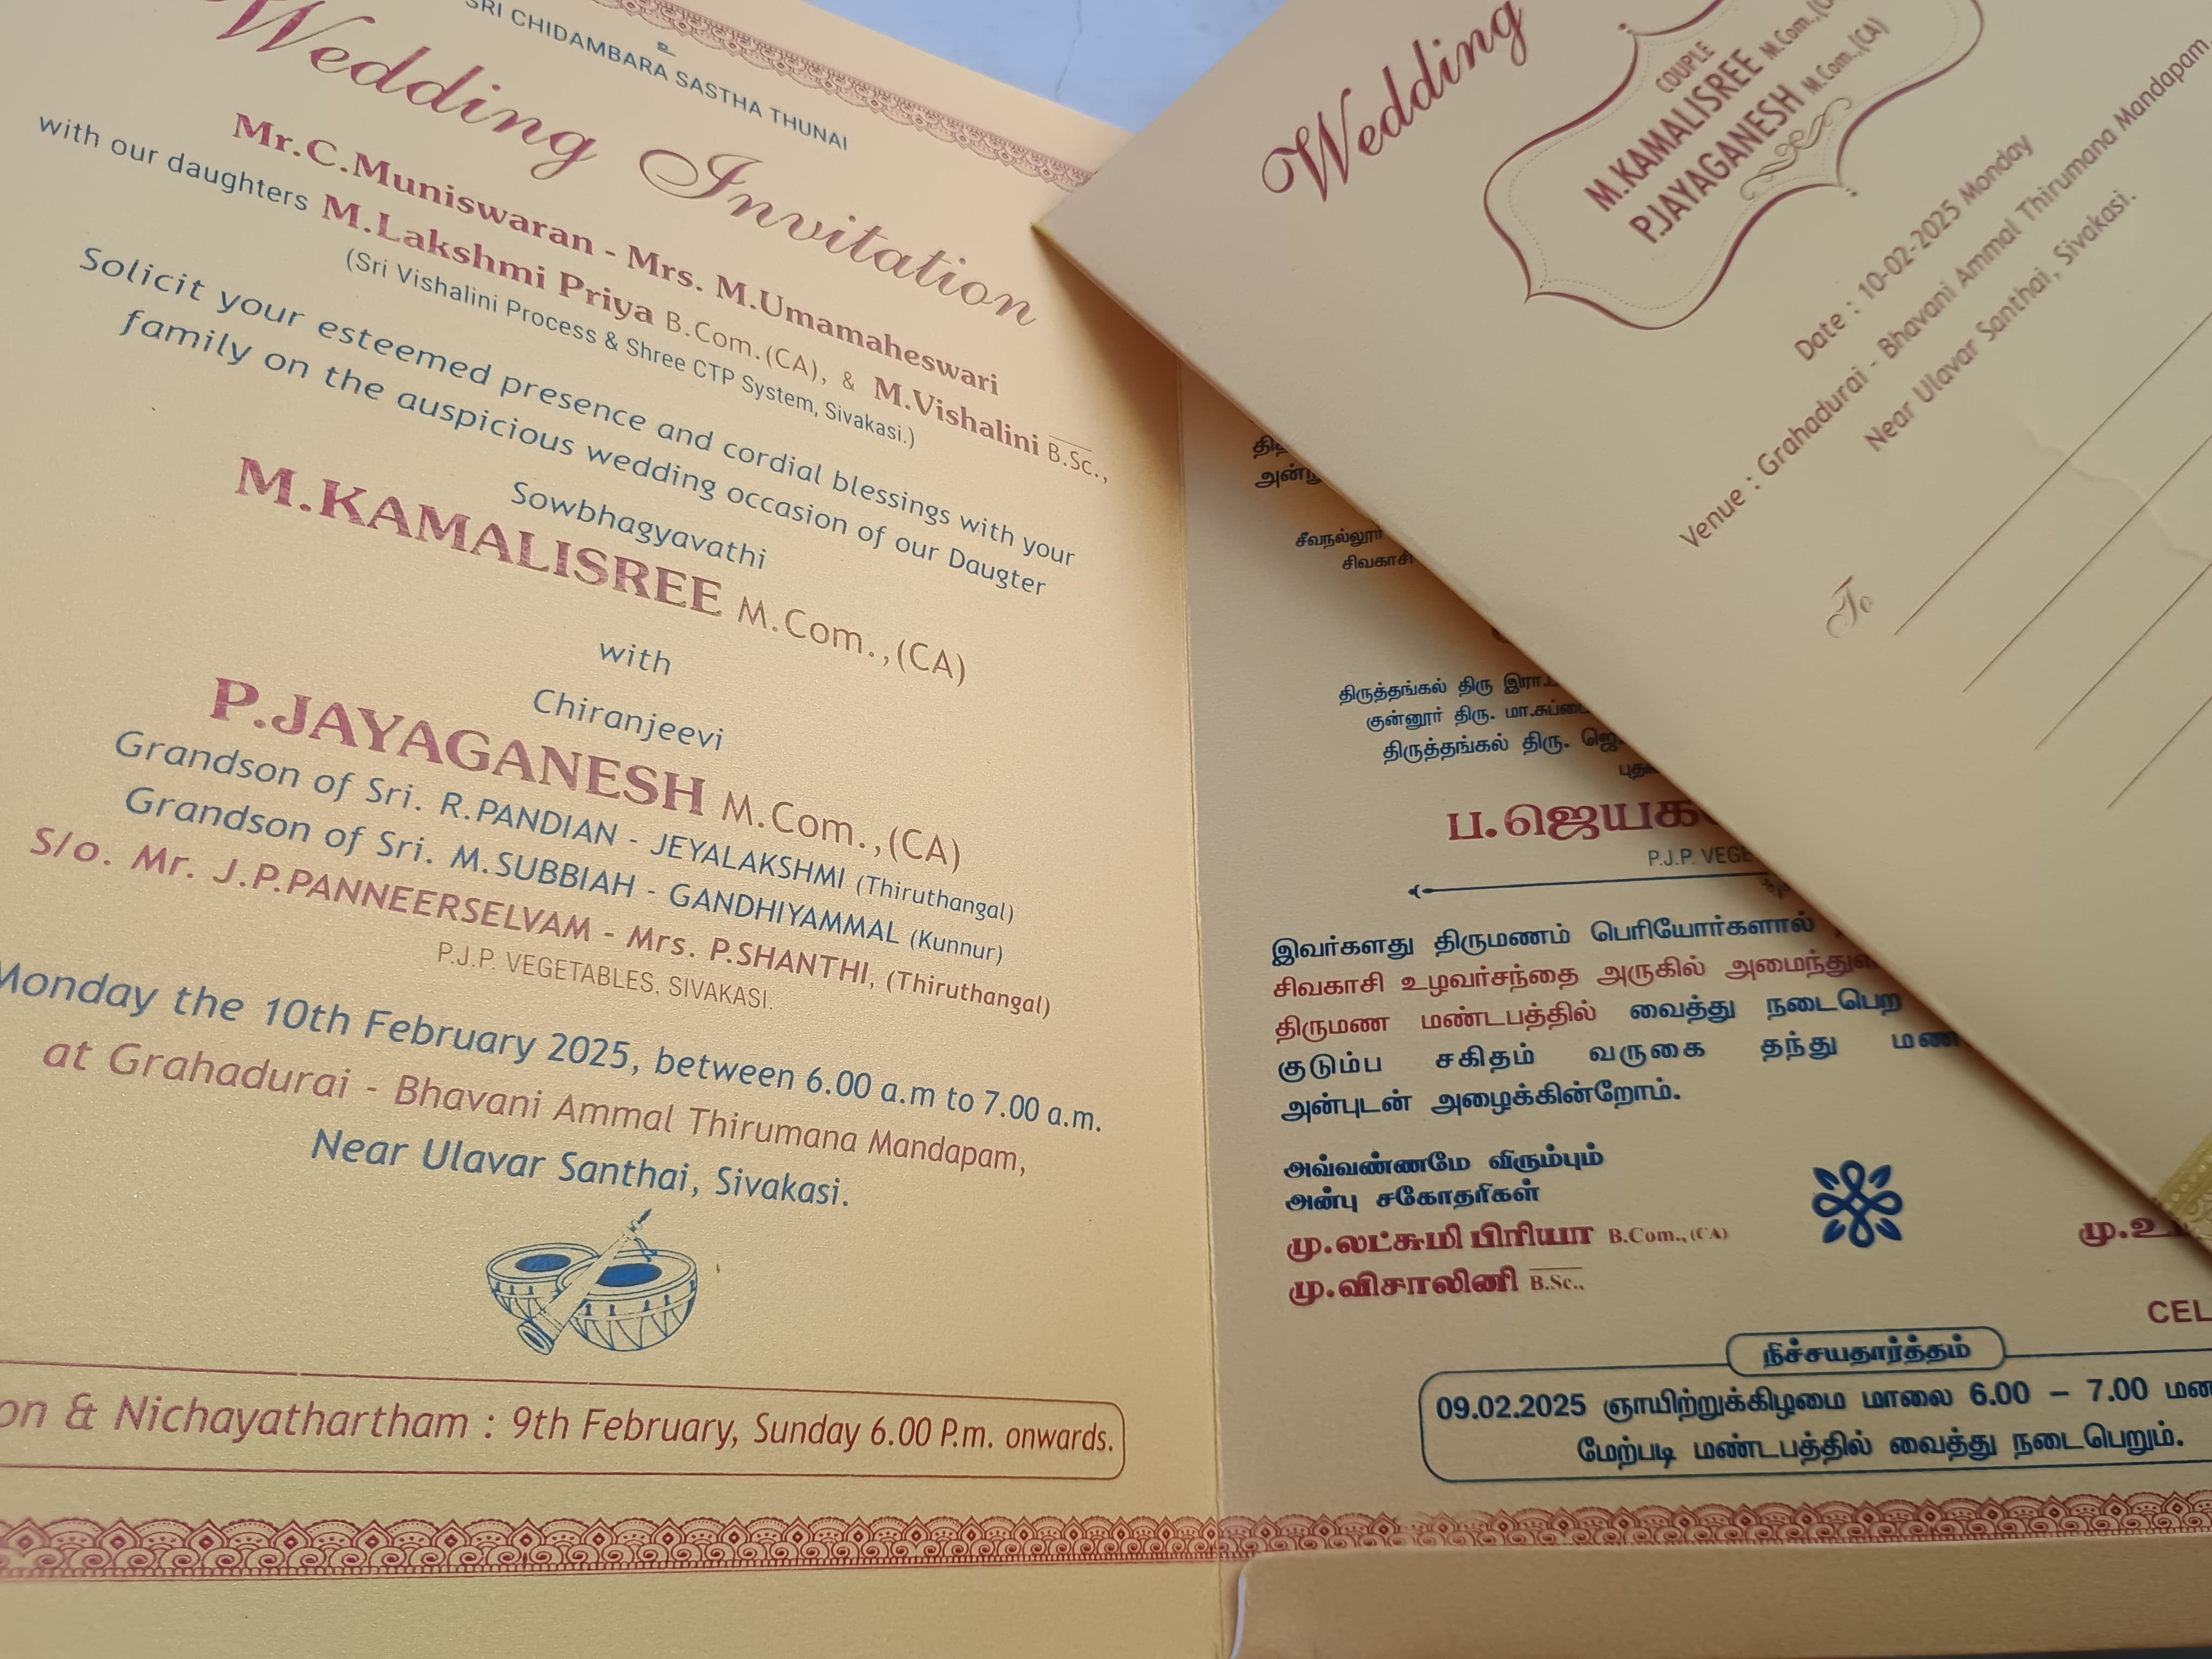 உ
SRI CHIDAMBARA SASTHA THUNAI
Wedding Invitation
Mr.C.Muniswaran - Mrs. M.Umamaheswari
with our daughters M.Lakshmi Priya B.Com.(CA), & M.Vishalini B.Sc.,
(Sri Vishalini Process & Shree CTP System, Sivakasi.)
Solicit your esteemed presence and cordial blessings with your
family on the auspicious wedding occasion of our Daugter
Sowbhagyavathi
M.KAMALISREE M.Com.,(CA)
with
Chiranjeevi
P.JAYAGANESH M.Com.,(CA)
Grandson of Sri. R.PANDIAN - JEYALAKSHMI (Thiruthangal)
Grandson of Sri. M.SUBBIAH - GANDHIYAMMAL (Kunnur)
S/o. Mr. J.P.PANNEERSELVAM - Mrs. P.SHANTHI, (Thiruthangal)
P.J.P. VEGETABLES, SIVAKASI.
Monday the 10th February 2025, between 6.00 a.m to 7.00 a.m.
at Grahadurai - Bhavani Ammal Thirumana Mandapam,
Near Ulavar Santhai, Sivakasi.
& Nichayathartham : 9th February, Sunday 6.00 P.m. onwards.
சீவநல்லூர்
சிவகாசி
திருத்தங்கல் திரு
குன்னூர் திரு.
திருத்தங்கல் திரு.
P.J.P.
இவர்களது திருமணம் பெரியோர்களால்
சிவகாசி உழவர்சந்தை அருகில்
திருமண மண்டபத்தில் வைத்து நடைபெற
குடும்ப சகிதம் வருகை தந்து
அன்புடன் அழைக்கின்றோம்.
அவ்வண்ணமே விரும்பும்
அன்பு சகோதரிகள்
மு.லட்சுமி பிரியா B.Com.,(CA)
மு.விசாலினி B.Sc.,
நிச்சயதார்த்தம்
09.02.2025 ஞாயிற்றுக்கிழமை மாலை 6.00 – 7.00
மேற்படி மண்டபத்தில் வைத்து நடைபெறும்.
Wedding
COUPLE
M.KAMALISREE M.Com.,
P.JAYAGANESH M.Com.,(CA)
Date : 10-02-2025 Monday
Venue : Grahadurai - Bhavani Ammal Thirumana Mandapam,
Near Ulavar Santhai, Sivakasi.
To